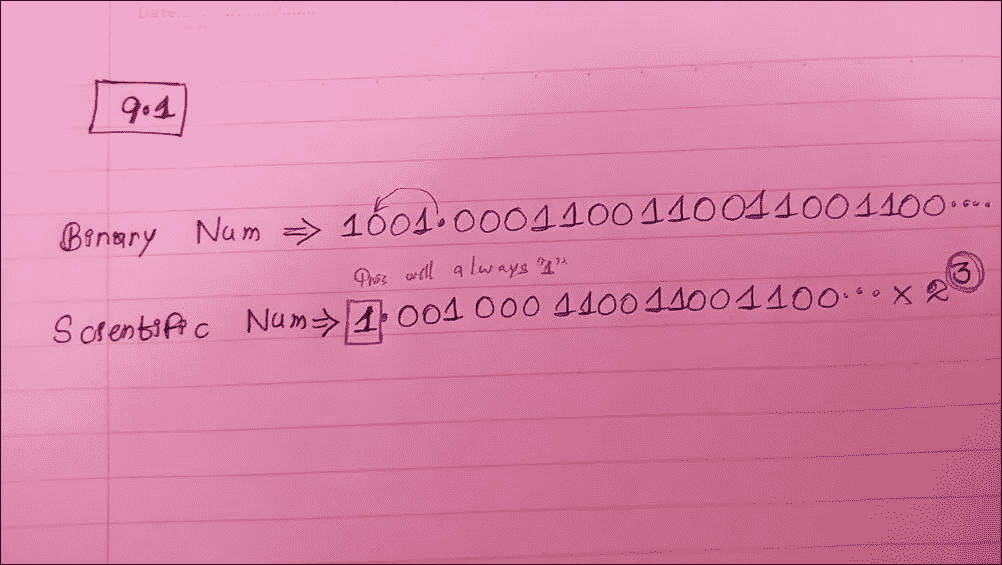 Date
9.1
Binary Num ⇒ 1001.00011001100110011001100.....
This will always "1"
Scientific Num ⇒ 1.001 000 1100110011001100... × 2^3